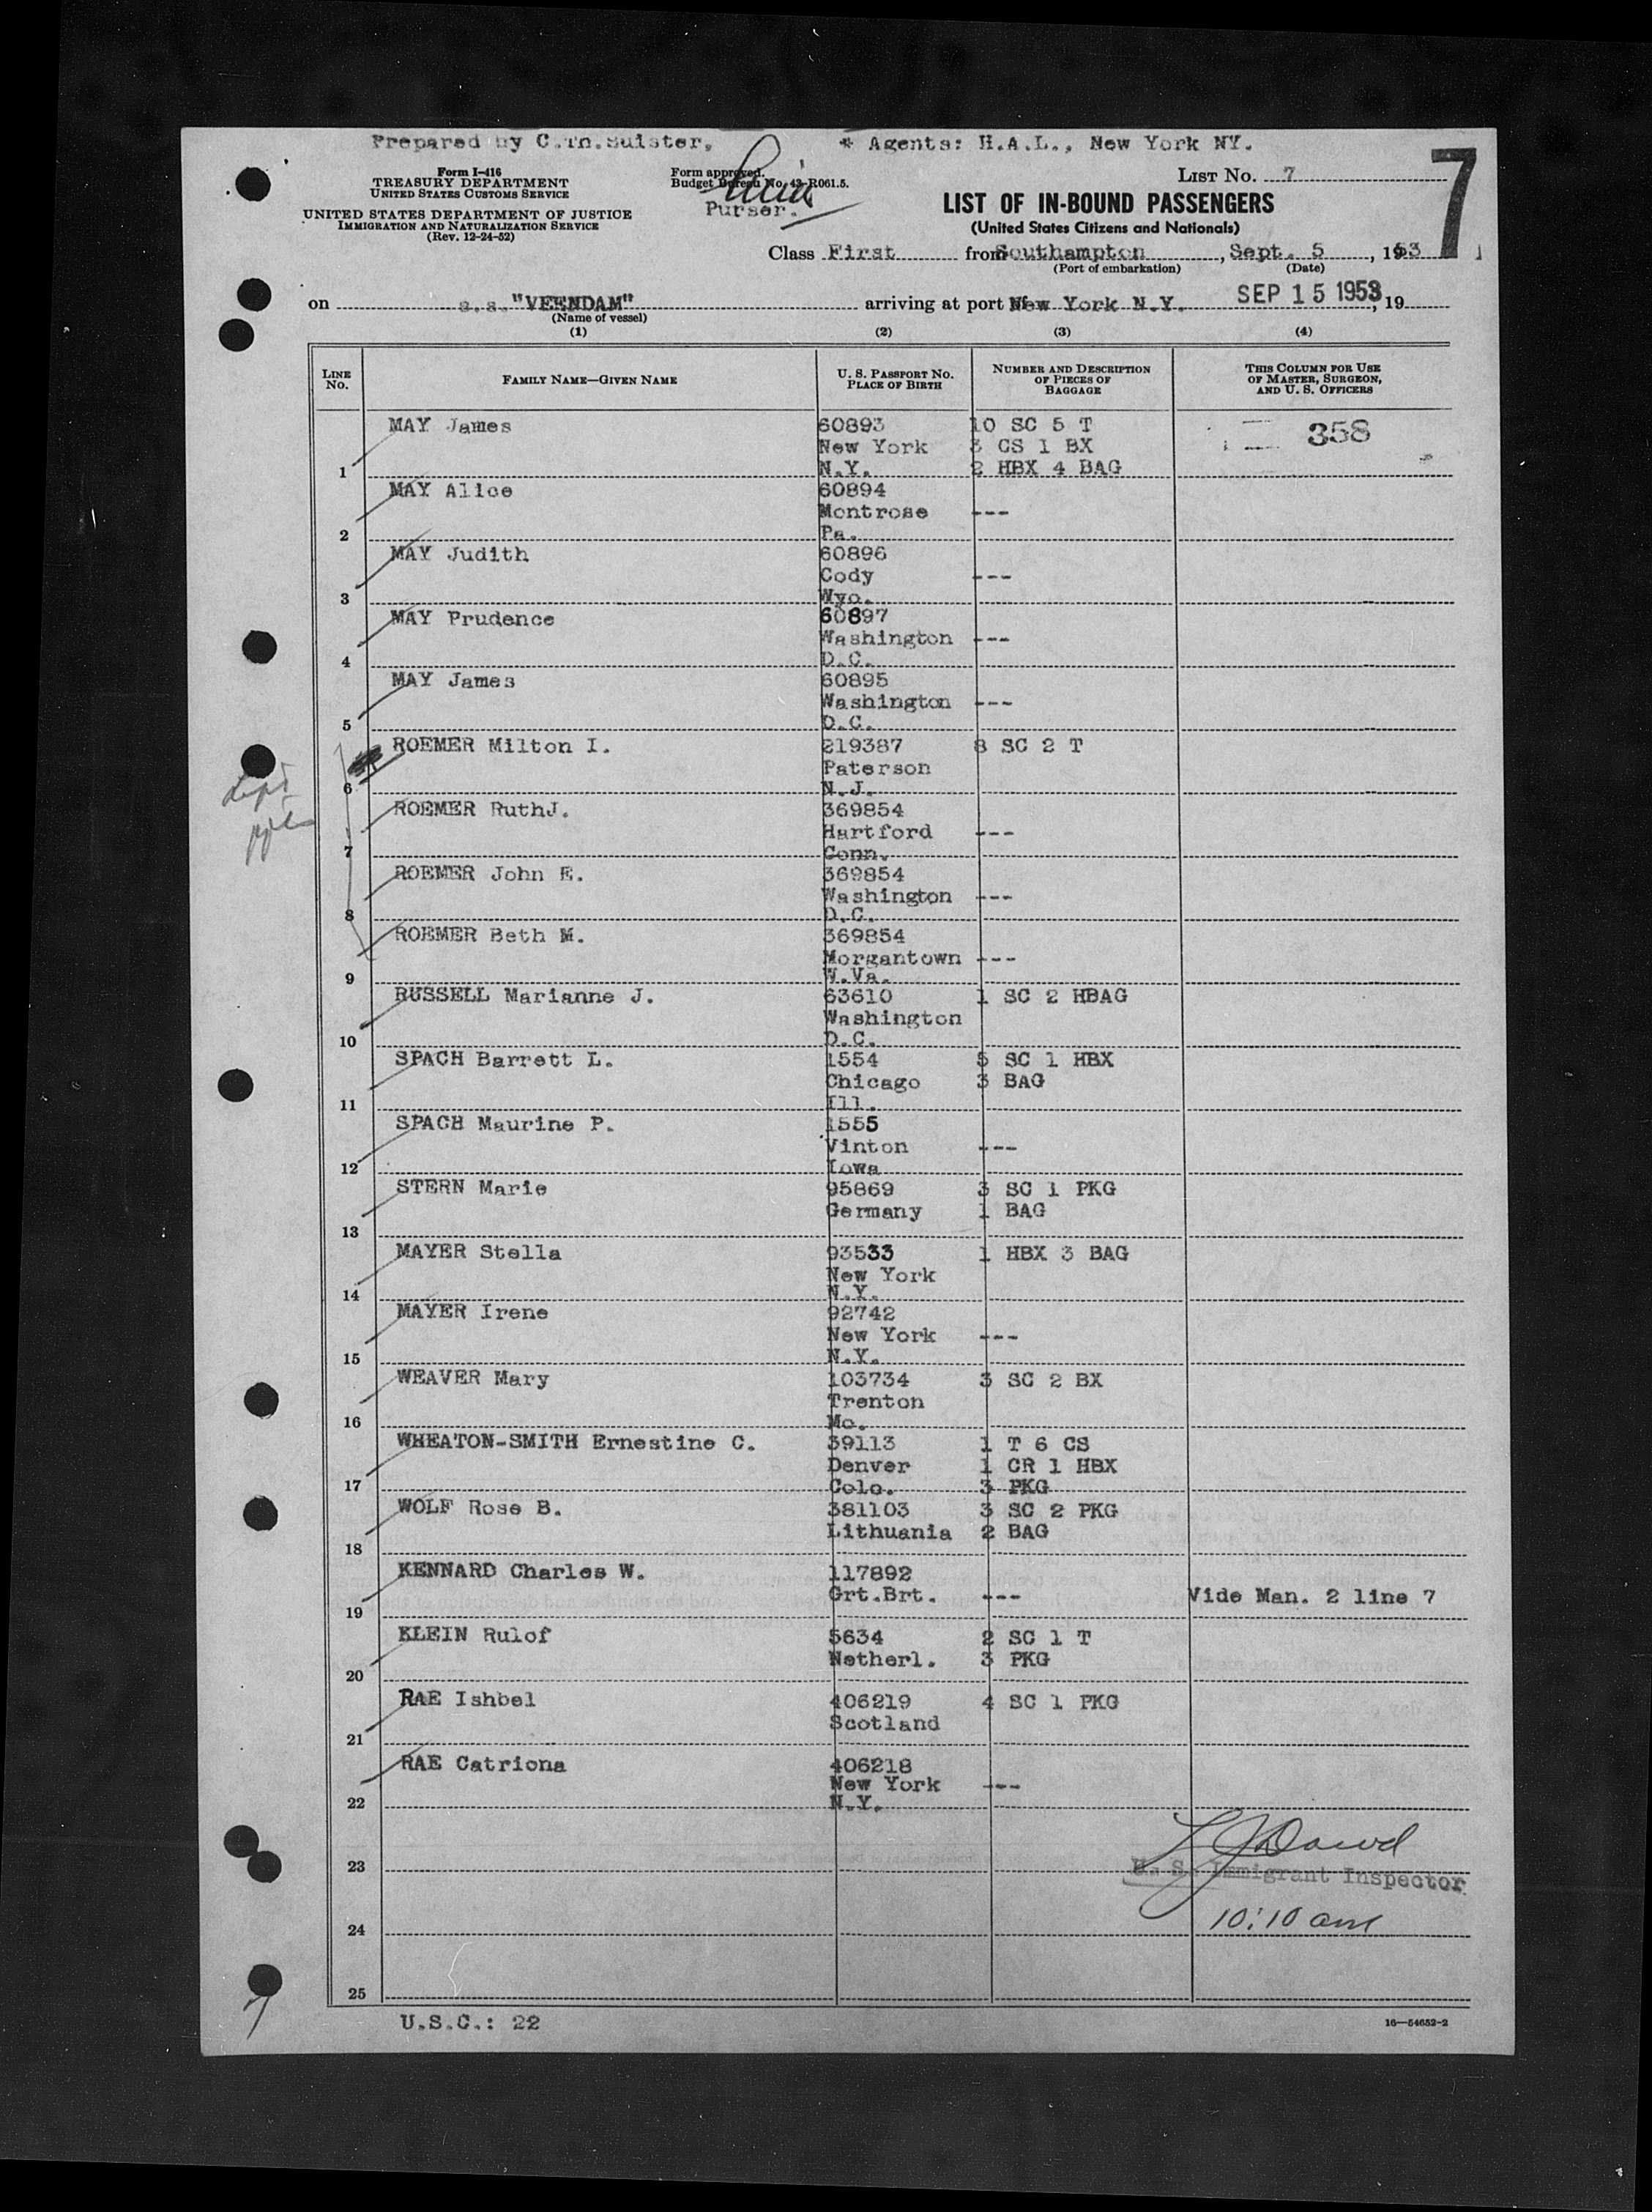 Prepared by C.Th.Suister, * Agents: H.A.L., New York NY.
Form I-416
TREASURY DEPARTMENT
UNITED STATES CUSTOMS SERVICE
UNITED STATES DEPARTMENT OF JUSTICE
IMMIGRATION AND NATURALIZATION SERVICE
(Rev. 12-24-52)
Form approved.
Budget Bureau No. 43-R061.5.
Purser.
LIST NO. 7
7
LIST OF IN-BOUND PASSENGERS
(United States Citizens and Nationals)
Class First from Southampton, Sept. 5, 1953
(Port of embarkation) (Date)
on s.s. "VEENDAM" arriving at port of New York N.Y. SEP 15 1953, 19
(Name of vessel)
(1) (2) (3) (4)
LINE NO. FAMILY NAME—GIVEN NAME U. S. PASSPORT NO. PLACE OF BIRTH NUMBER AND DESCRIPTION OF PIECES OF BAGGAGE THIS COLUMN FOR USE OF MASTER, SURGEON, AND U. S. OFFICERS
MAY James 60893 10 SC 5 T 358
New York 3 CS 1 BX
1 N.Y. 2 HBX 4 BAG
MAY Alice 60894
Montrose ---
2 Pa.
MAY Judith 60896
Cody ---
3 Wyo.
MAY Prudence 60897
Washington ---
4 D.C.
MAY James 60895
Washington ---
5 D.C.
ROEMER Milton I. 219387 8 SC 2 T
Paterson
6 N.J.
ROEMER RuthJ. 369854
Hartford ---
7 Conn.
ROEMER John E. 369854
Washington ---
8 D.C.
ROEMER Beth M. 369854
Morgantown ---
9 W.Va.
RUSSELL Marianne J. 63610 1 SC 2 HBAG
Washington
10 D.C.
SPACH Barrett L. 1554 5 SC 1 HBX
Chicago 3 BAG
11 Ill.
SPACH Maurine P. 1555
Vinton ---
12 Iowa
STERN Marie 95869 3 SC 1 PKG
Germany 1 BAG
13
MAYER Stella 93533 1 HBX 3 BAG
New York
14 N.Y.
MAYER Irene 92742
New York ---
15 N.Y.
WEAVER Mary 103734 3 SC 2 BX
Trenton
16 Mo.
WHEATON-SMITH Ernestine C. 39113 1 T 6 CS
Denver 1 CR 1 HBX
17 Colo. 3 PKG
WOLF Rose B. 381103 3 SC 2 PKG
Lithuania 2 BAG
18
KENNARD Charles W. 117892
Grt.Brt. --- Vide Man. 2 line 7
19
KLEIN Rulof 5634 2 SC 1 T
Netherl. 3 PKG
20
RAE Ishbel 406219 4 SC 1 PKG
Scotland
21
RAE Catriona 406218
New York ---
22 N.Y.
23 U. S. Immigrant Inspector
10:10 am
24
25
7
U.S.C.: 22 16—54652-2